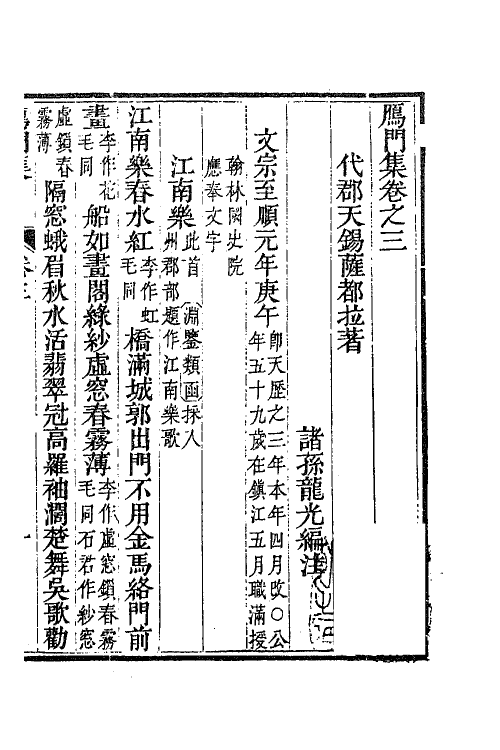 鴈門集卷之三
代郡天錫薩都拉著
諸孫龍光編注
文宗至順元年庚午即天歷之三年本年四月改○公年五十九歲在鎮江五月職滿授
翰林國史院應奉文字
江南樂此首淵鑒類函採入州郡部題作江南樂歌
江南樂春水紅李作虹毛同橋滿城郭出門不用金馬絡門前
畫李作花毛同船如畫閣綠紗虛窓春霧薄李作虛窓鎖春霧毛同石君作紗窓
虛鎖春霧薄隔窓蛾眉秋水活翡翠冠高羅袖濶楚舞吳歌勸